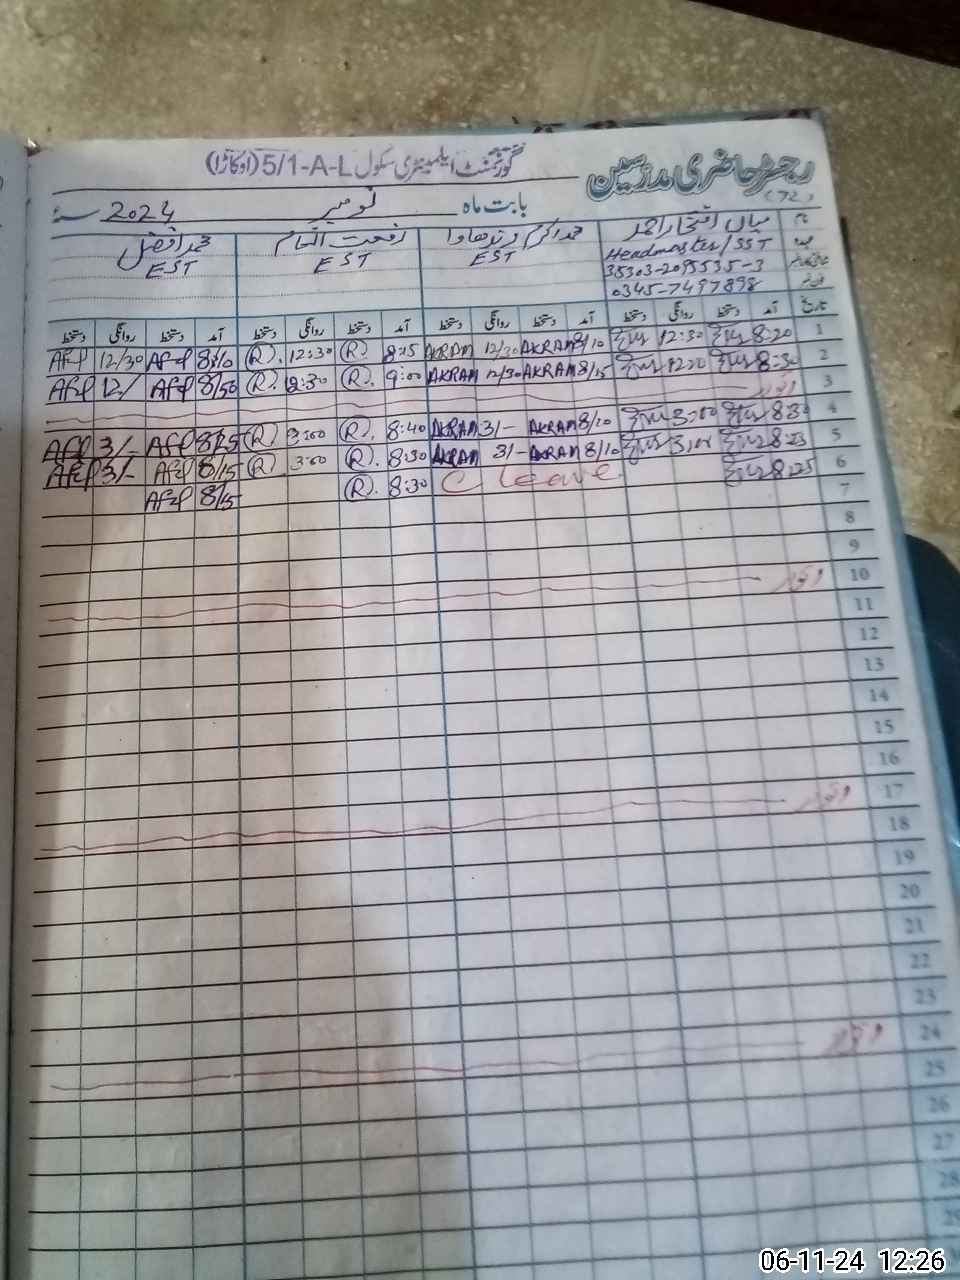 گورنمنٹ ایلیمینٹری سکول 5/1-A-L (اوکاڑا)
رجسٹر حاضری مدرسین
(72)
بابت ماہ نومبر 2024 سنہ
نام میاں افتخار احمد محمد اکرم رفعت محمد افضل
Headmaster/SST EST EST EST
35303-2095535-3
0345-7497898
تاریخ آمد دستخط روانگی دستخط آمد دستخط روانگی دستخط آمد دستخط روانگی دستخط آمد دستخط روانگی دستخط
1 8:20 12:30 8/10 AKRAM 12/30 AKRAM 8:15 (R). 12:30 (R). 8/10 Afzl 12/30 Afzl
2 8:30 12:20 8/15 AKRAM 12/30 AKRAM 9:00 (R). 12:30 (R). 8/50 Afzl 12/ Afzl
3 اتوار
4 8:30 3:00 8/20 AKRAM 3/- AKRAM 8:40 (R). 3:00 (R) 8/25 Afzl 3/- Afzl
5 8:25 3:00 8/10 AKRAM 3/- AKRAM 8:30 (R). 3:00 (R) 8/15 Afzl 3/- Afzl
6 8:25 C leave 8:30 (R). 8/15 Afzl
7
8
9
10 اتوار
11
12
13
14
15
16
17 اتوار
18
19
20
21
22
23
24 اتوار
25
26
27
28
29
06-11-24 12:26